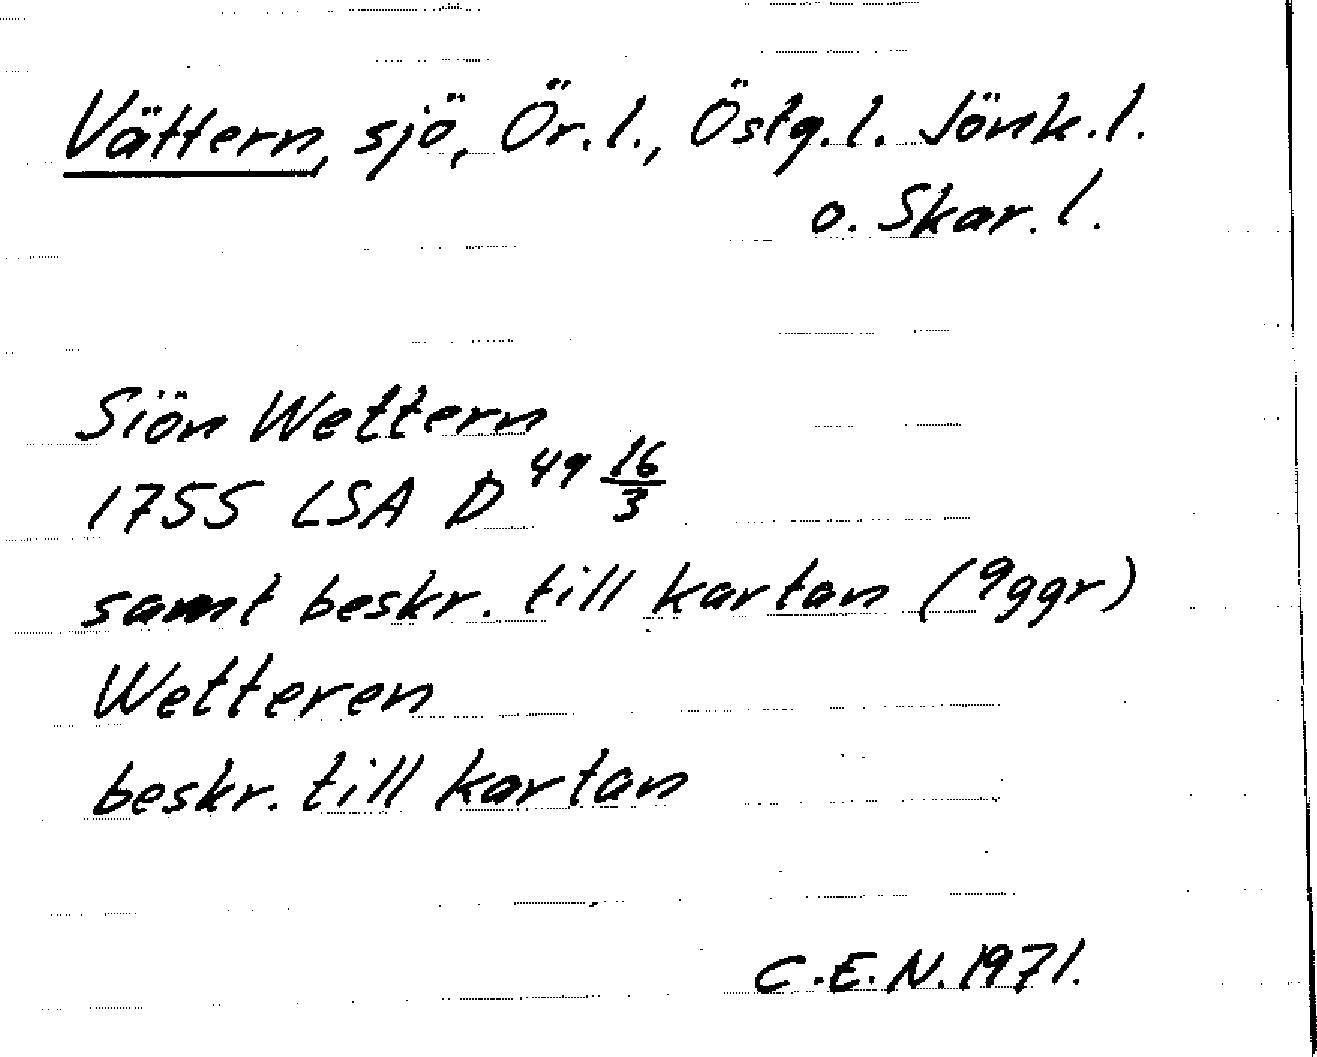 Vättern, sjö, Ör.l., Östg.l. Jönk.l.
o. Skar.l.
Siön Wettern
1755 LSA D 49 16/3
samt beskr. till kartan (9ggr)
Wetteren
beskr. till kartan
C.E.N. 1971.